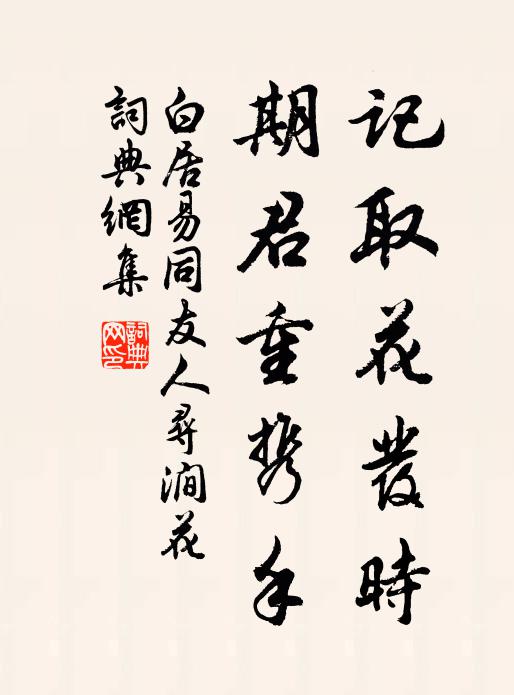 记取花發時
期君重携手
白居易同友人尋澗花
詞典網集
詞典網印